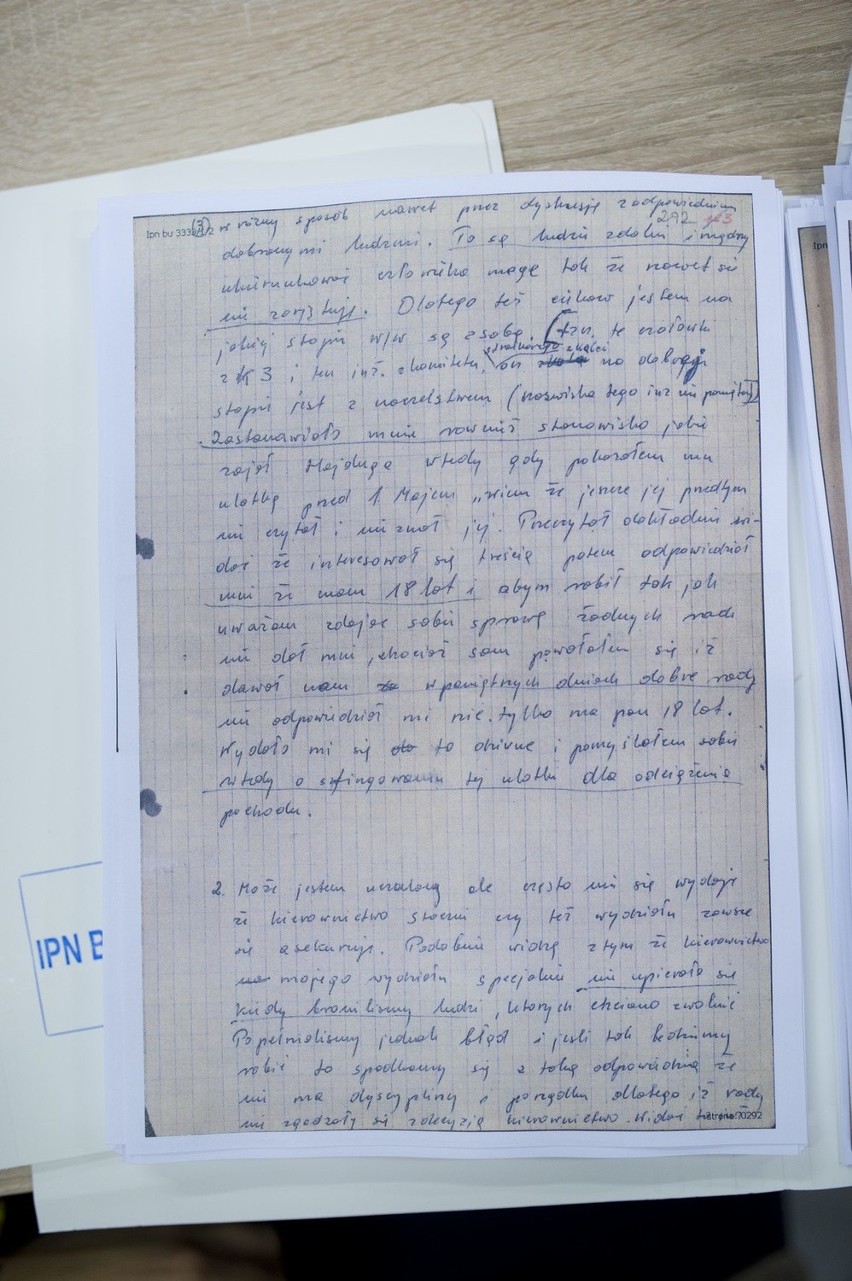 Ipn bu 333 (3) w różny sposób nawet przez dyskusję z odpowiednim
292 3
dobranymi ludźmi. To są ludzie zdolni i mądrzy
ukierunkować człowieka mogą tak że nawet się
ni zorjętuje. Dlatego też ciekaw jestem na
jakiej stopie w/w są z sobą, tzn. te czołówki
z K3 i ten inż. z komitetu, on na dobrej
stopie jest z naczelstwem (nazwiska tego inż ni pamiętam)
Zastanawiało mnie również stanowisko jakie
zajął Hajduga wtedy gdy pokazałem mu
ulotkę przed 1. Majem „wiem że jeszcze jej przedtym
ni czytał i ni znał jej. Przeczytał dokładnie wi-
dać że interesował się treścią potem odpowiedział
mni że mam 18 lat i abym robił tak jak
uważam zdając sobie sprawę żadnych rad
ni dał mni, chociaż sam powołałem się iż
dawał nam w pamiętnych dniach dobre rady
ni odpowiedział mi nic. tylko ma pan 18 lat.
Wydało mi się to dziwne i pomyślałem sobie
wtedy o sfingowaniu tej ulotki dla odciążenia
pochodu.
2. Może jestem uczulony ale często mi się wydaje
że kierownictwo stoczni czy też wydziału zawsze
się asekuruje. Podobnie widzę z tym że kierownictwo
mojego wydziału specjalnie ni upierało się
kiedy broniliśmy ludzi, których chciano zwolnić
Popełnialiśmy jednak błąd i jeśli tak będziemy
robić to spotkamy się z taką odpowiedzią że
ni ma dyscypliny i porządku dlatego iż rady
ni zgadzały się z decyzją kierownictwa. Widać
strona: 70292
IPN B
Ipn